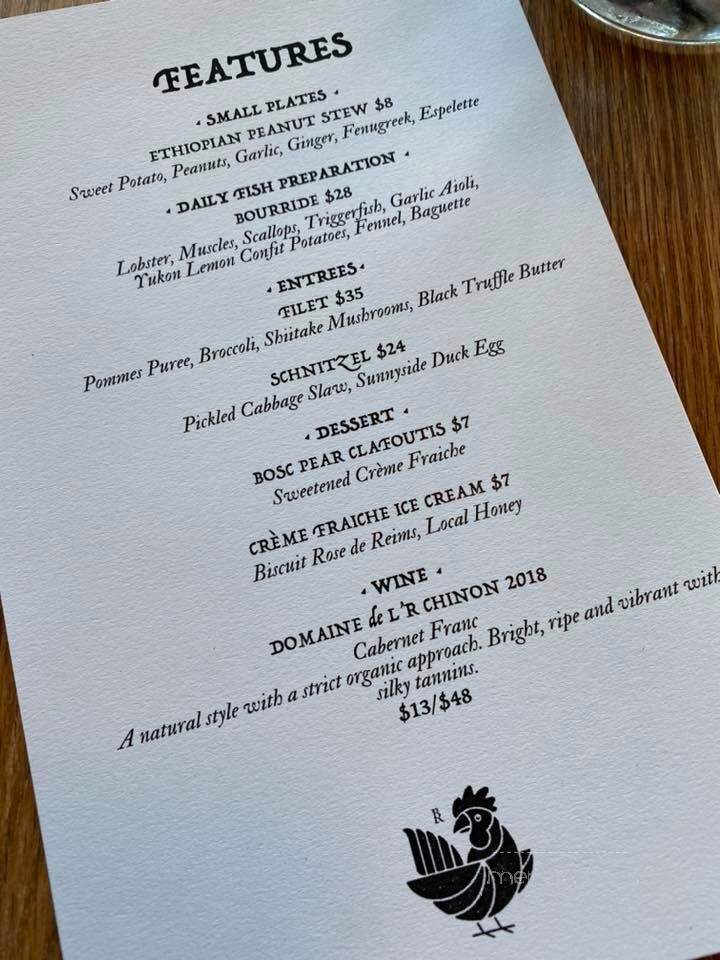 FEATURES
· SMALL PLATES ·
ETHIOPIAN PEANUT STEW $8
Sweet Potato, Peanuts, Garlic, Ginger, Fenugreek, Espelette
· DAILY FISH PREPARATION ·
BOURRIDE $28
Lobster, Muscles, Scallops, Triggerfish, Garlic Aioli,
Yukon Lemon Confit Potatoes, Fennel, Baguette
· ENTREES ·
FILET $35
Pommes Puree, Broccoli, Shiitake Mushrooms, Black Truffle Butter
SCHNITZEL $24
Pickled Cabbage Slaw, Sunnyside Duck Egg
· DESSERT ·
BOSC PEAR CLAFOUTIS $7
Sweetened Crème Fraiche
CRÈME FRAICHE ICE CREAM $7
Biscuit Rose de Reims, Local Honey
· WINE ·
DOMAINE de L'R CHINON 2018
Cabernet Franc
A natural style with a strict organic approach. Bright, ripe and vibrant with
silky tannins.
$13/$48